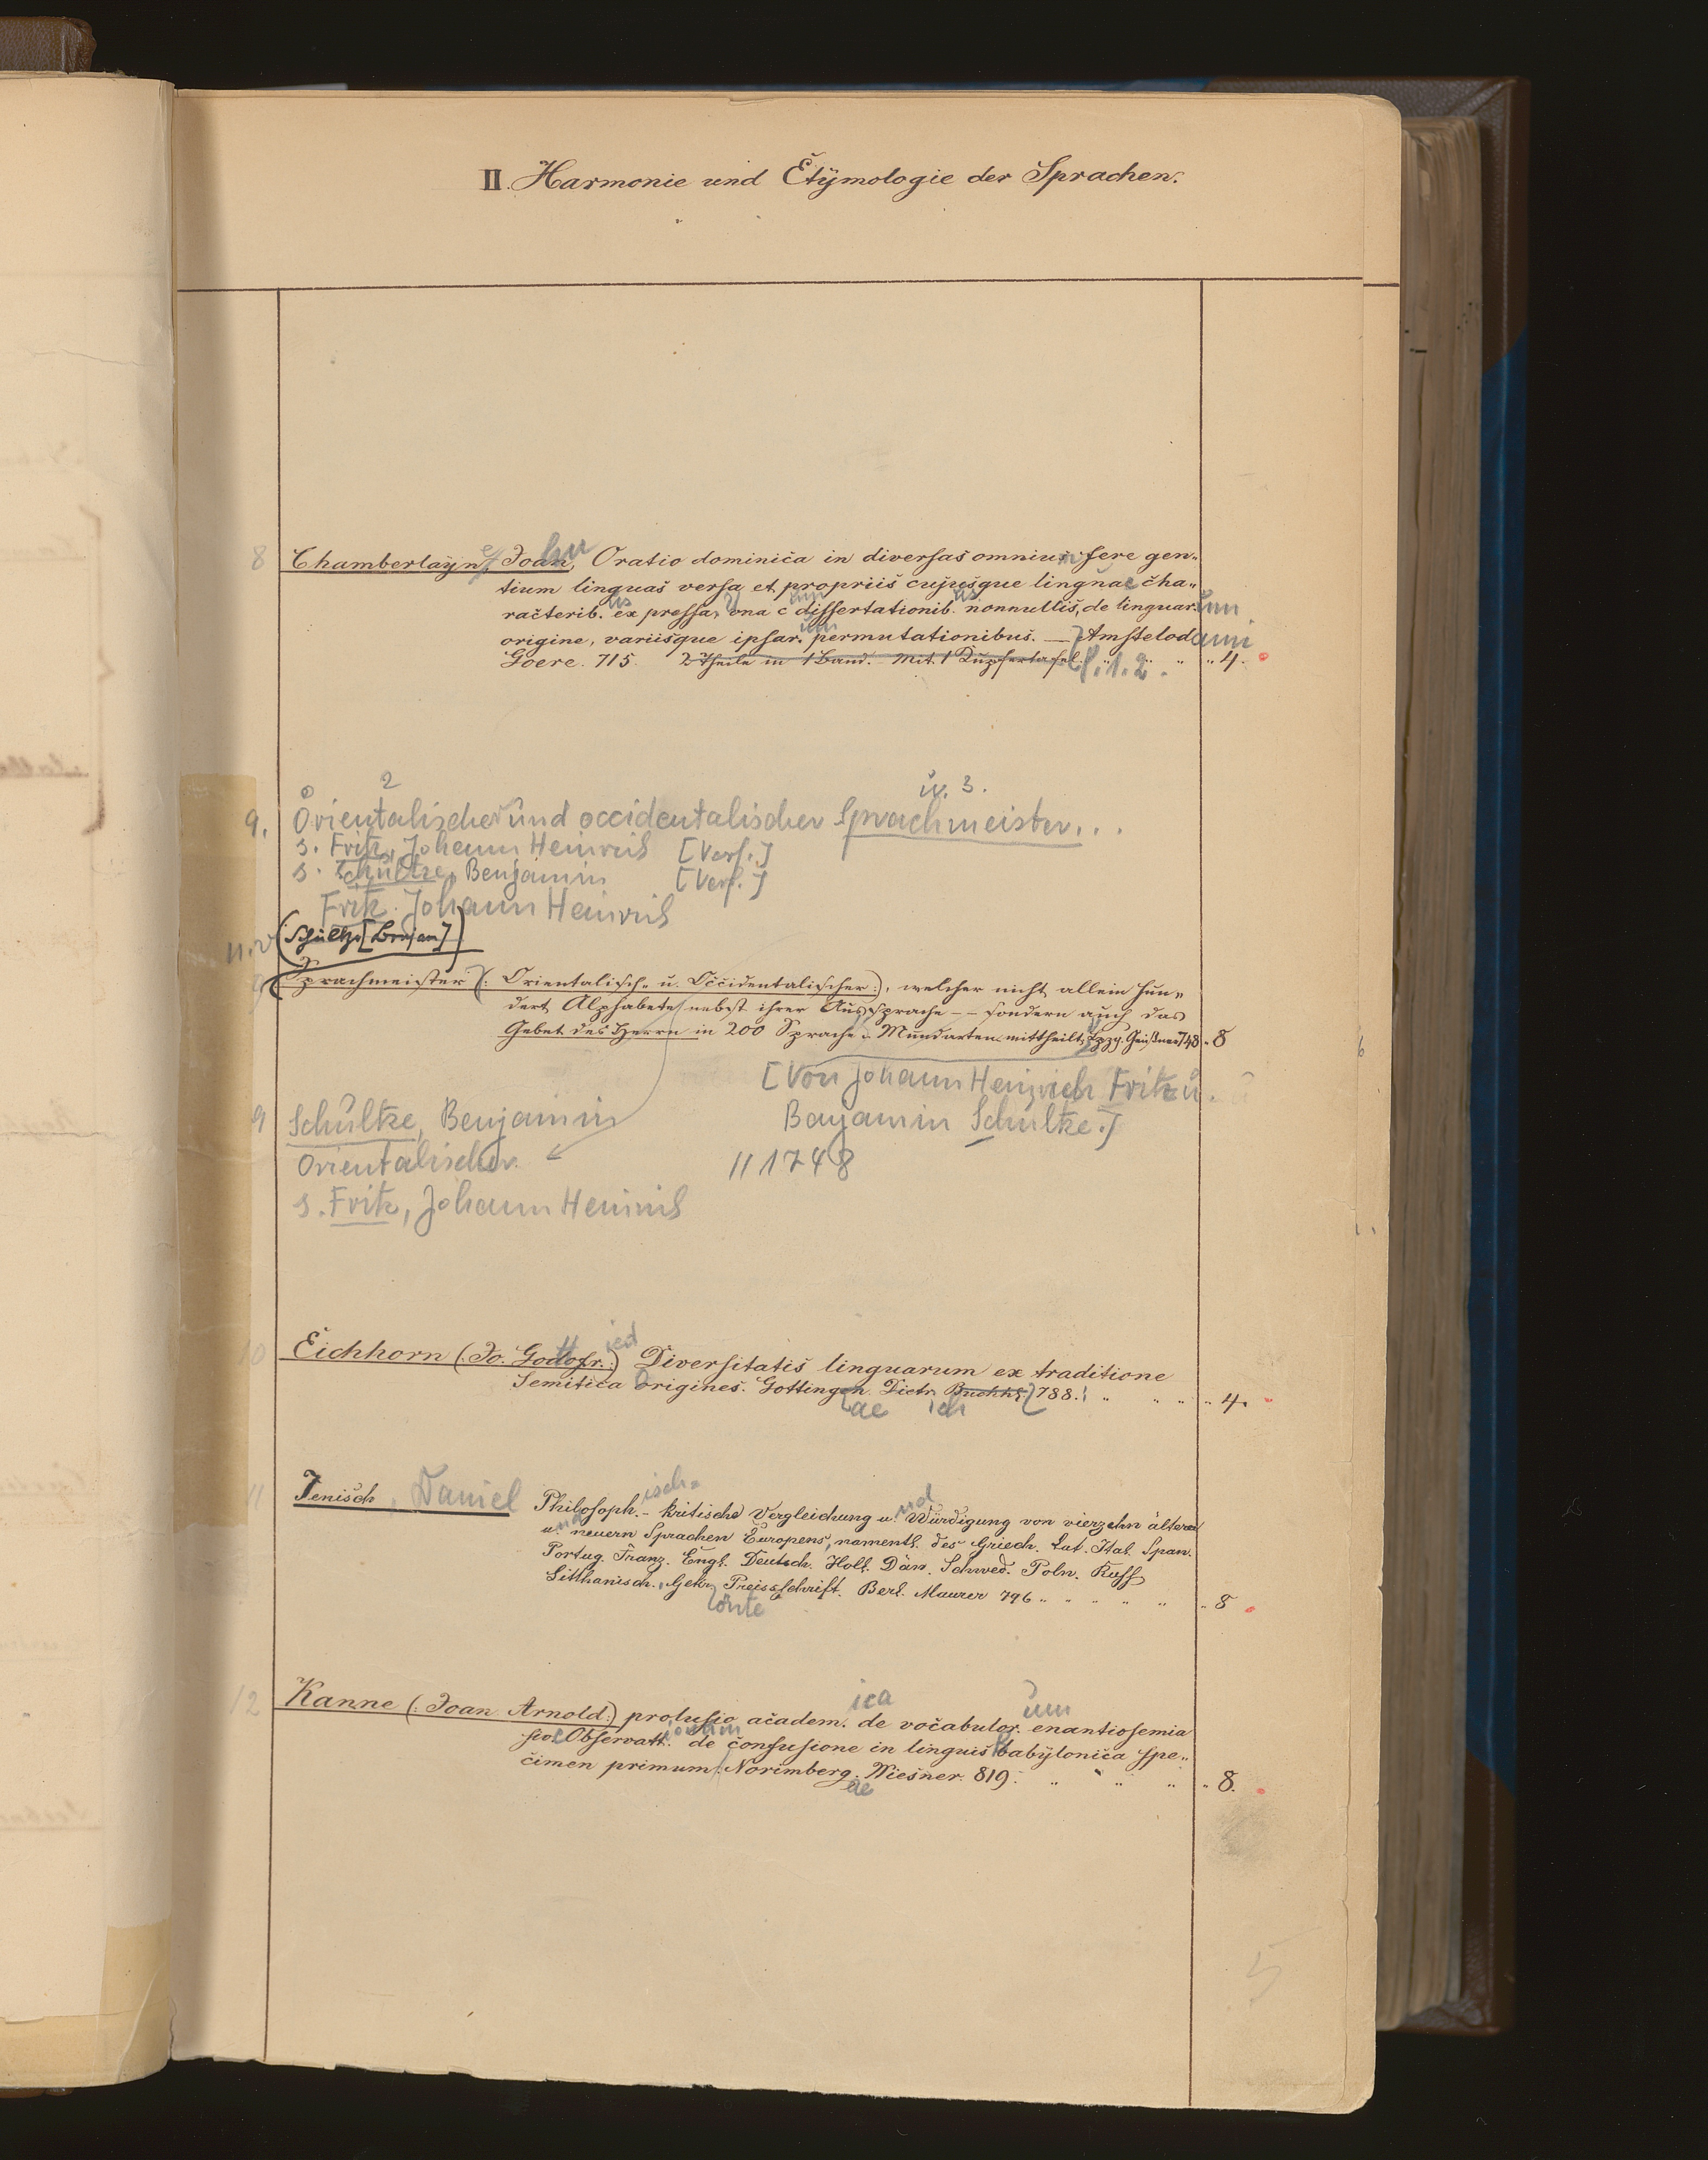 II. Harmonie und Etÿmologie der Sprachen.
8 Chamberlaÿne, John, Oratio dominica in diversas omnium fere gen-
tium linguas versa et propriis cujusque linguae cha-
racterib.us expressa, una cum dissertationib.us nonnullis, de linguar.um
origine, variisque ipsar.um permutationibus. — Amstelodami
Goere. 715. 2 Theile in 1 Band. Mit 1 Kupfertafel. P. 1. 2. „ 4.
2 u. 3.
9. Orientalischer und occidentalischer Sprachmeister...
s. Fritz, Johann Heinrich [Verf.]
s. Schultze, Benjamin [Verf.]
Fritz. Johann Heinrich
(Schultze [Benjam])
9 Sprachmeister (: Orientalisch- u. Occidentalischer:), welcher nicht allein hun-
dert Alphabete nebst ihrer Aussprache –– sondern auch das
Gebet des Herrn in 200 Sprache u. Mundarten mittheilt, Lpzg. Geißner 748 „ 8
[Von Johann Heinrich Fritz u.
Benjamin Schultze.]
9 Schultze, Benjamin
Orientalischer // 1748
s. Fritz, Johann Heinrich
10 Eichhorn (: Jo. Gottofr.ied :) Diversitatis linguarum ex traditione
Semitica Origines. Gottingae. Dietrich Buchh. 788. „ „ „ „ 4.
11 Jenisch, Daniel Philosoph.isch- kritische Vergleichung und Würdigung von vierzehn ältern
und neuern Sprachen Europens, namentl. des Griech. Lat. Ital. Span.
Portug. Franz. Engl. Deutsch. Holl. Dän. Schwed. Poln. Russ
Litthanisch., Gekrönte Preisschrift. Berl. Maurer 796 „ „ „ „ „ „ 8
12 Kanne (: Joan Arnold:) prolusio academ.ica de vocabulor.um enantiosemia
sive Observatt.ionum de confusione in linguis babÿlonica spe-
cimen primum. Norimbergae. Wiesner. 819. „ „ „ „ „ 8.
5